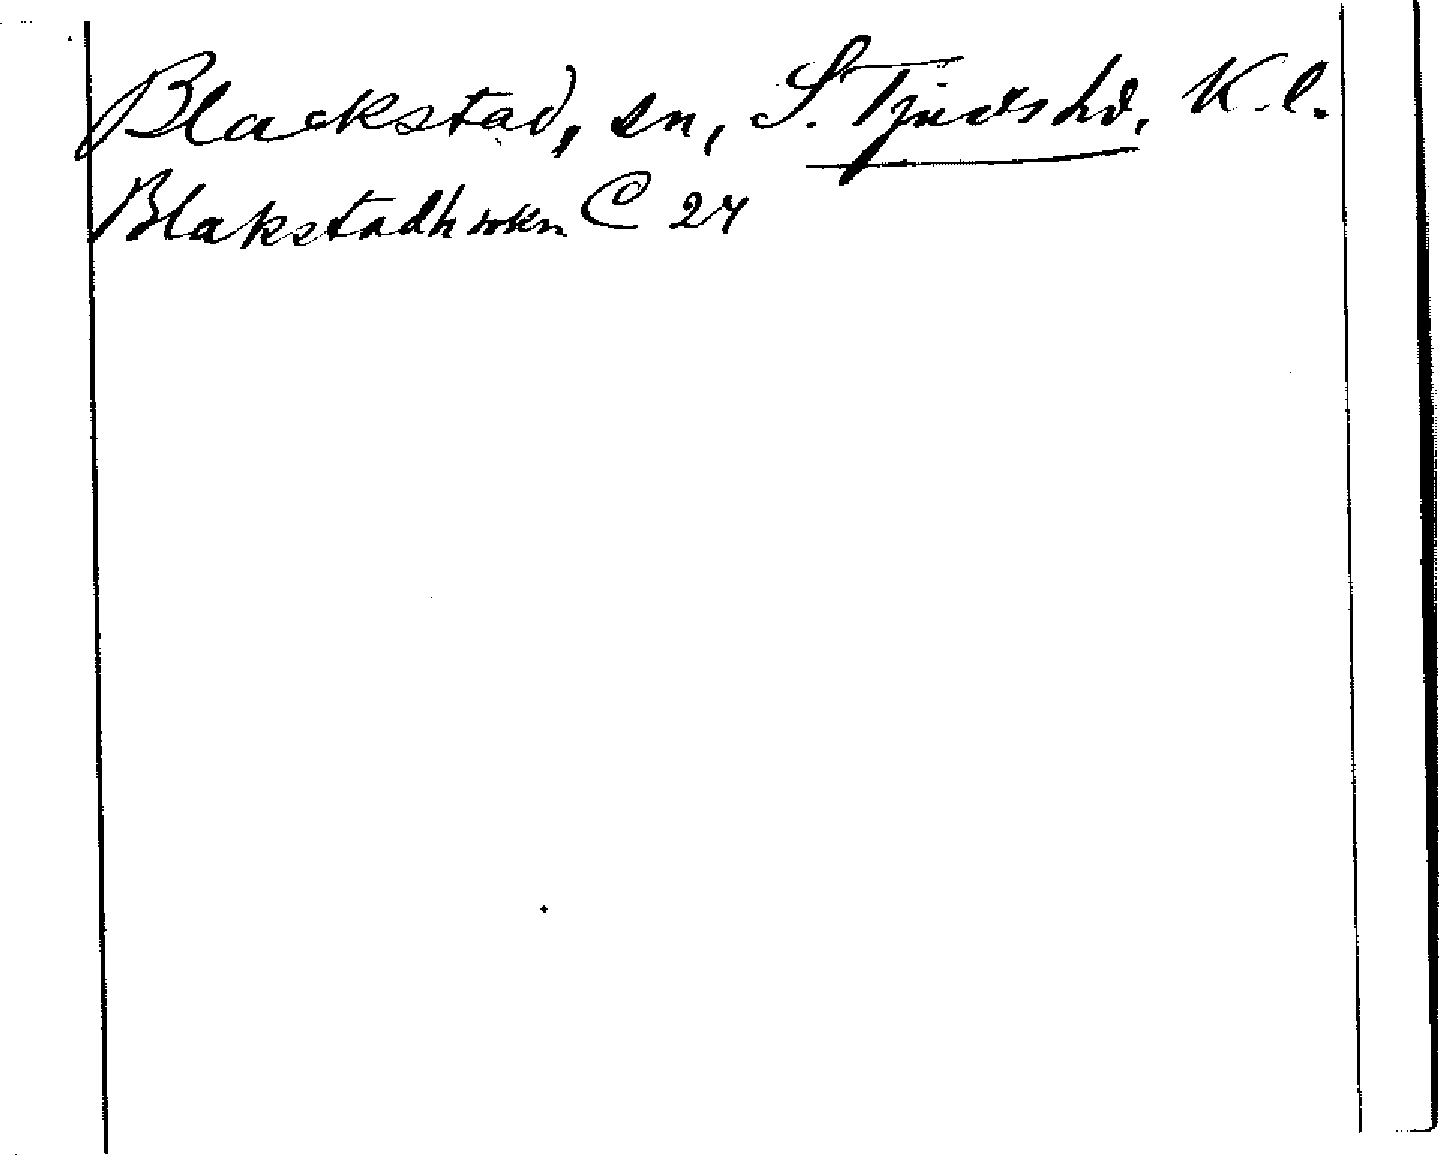 Blackstad, sn, S. Tjusts hd, K. l.
Blakstadh sokn C 24